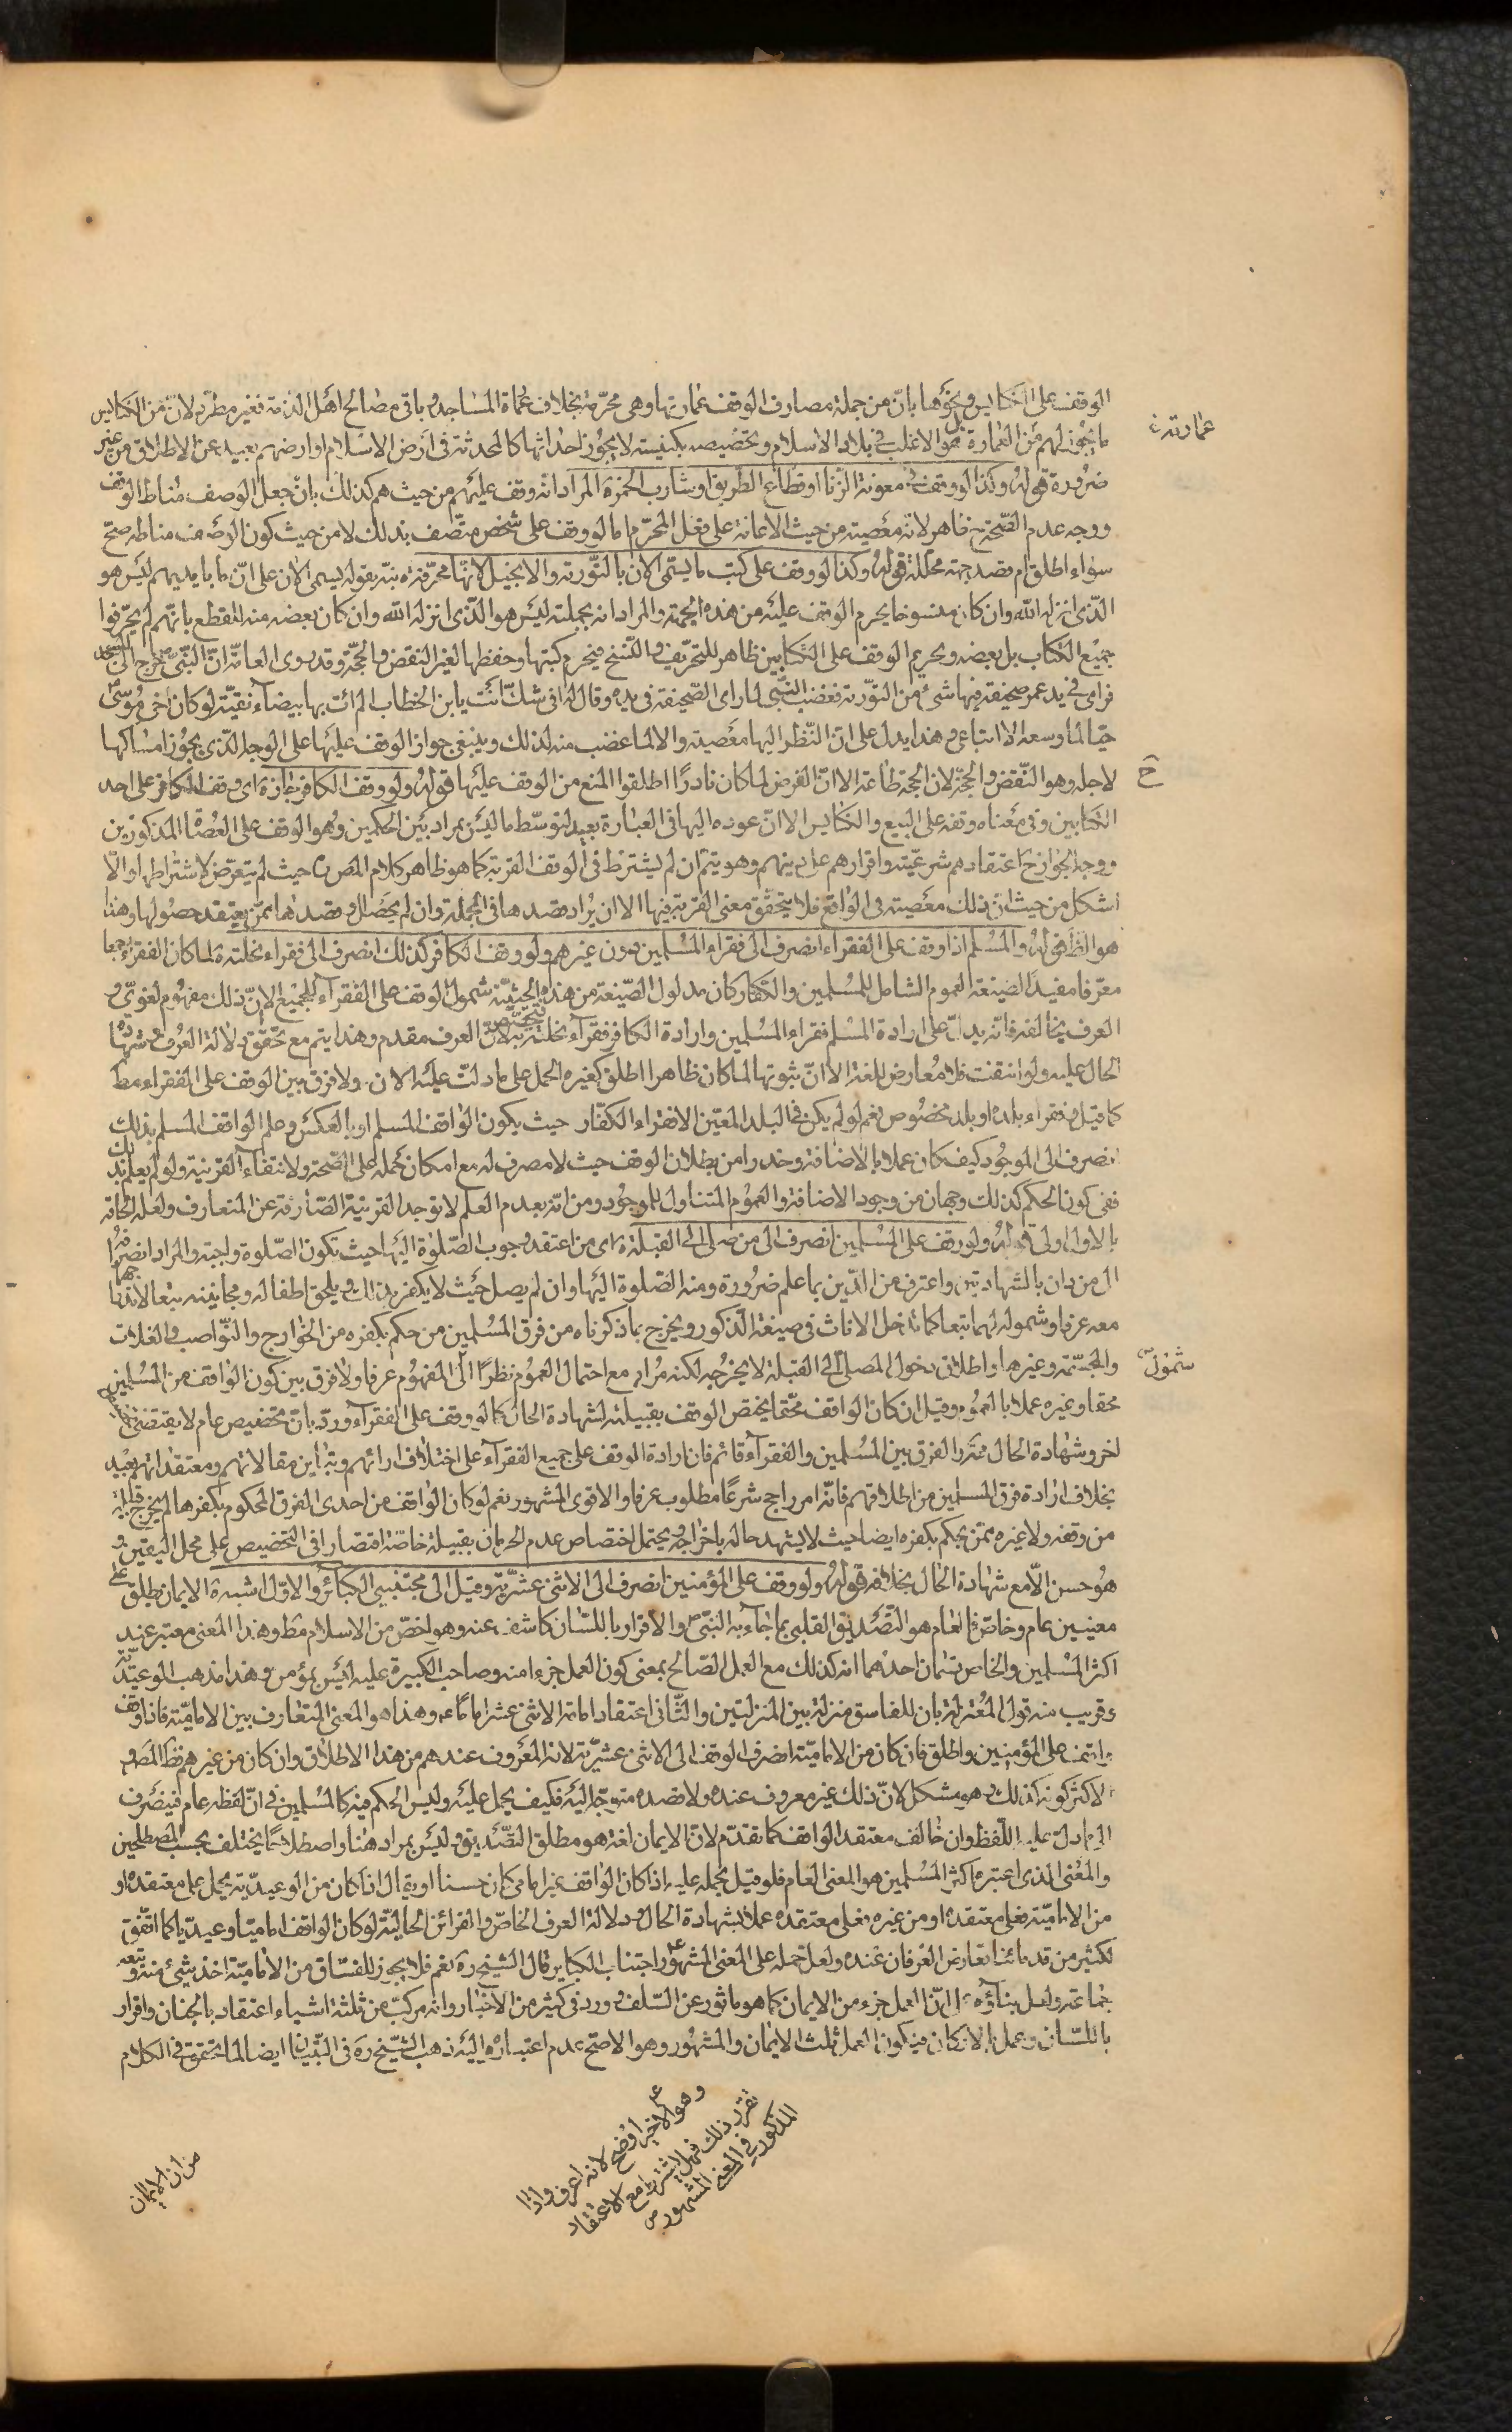 الوقف على الكنايس ونحوها بانّ من جملة مصارف الوقف عمارتها وهى محرّمة بخلاف عمارة المساجد وباقى مصالح اهل الذمة فغير مطرد لانّ من الكنايس
ما يجوز لهم من العمارة بل هو الاغلب فى بلاد الاسلام وتخصيصه بكنيسة لا يجوز احداثها كالمحدثة فى ارض الاسلام او ارضهم بعيد عن الاطلاق من غير
ضرورة قوله وكذا لو وقف فى معونة الزنا او قطاع الطريق او شارب الخمر المراد انه وقف عليهم من حيث هم كذلك بانّ جعل الوصف مناط الوقف
ووجه عدم الصّحة ح ظاهر لانه معصية من حيث الاعانة على فعل المحرّم اما لو وقف على شخص متّصف بذلك لا من حيث كون الوصف مناطه صحّ
سواء اطلق ام قصد جهة محللة قوله وكذا لو وقف على كتب ما يسمى الان بالتّورية والانجيل لانها محرّفة نبّه بقوله يسمى الان على انّ ما بايديهم ليس هو
الّذى انزله الله وان كان منسوخا يحرم الوقف عليه من هذه الجهة والمراد انه بجملته ليس هو الّذى انزل الله وان كان بعضه منه للقطع بانّهم لم يحرّفوا
جميع الكتاب بل بعضه وتحريم الوقف على الكتابين ظاهر للتحريف والنسخ فيحرم كتبها وحفظها لغير النقض والحجّة وقد روى العامّة انّ النّبى ص خرج الى المسجد
فراى فى يد عمر صحيفة فيها شئ من التّورية فغضب النّبى لما راى الصّحيفة فى يده وقال له افى شكّ انت يا بن الخطاب الم آت بها بيضآء نقيّة لو كان اخى موسى
حيّا لما وسعه الا اتباعى وهذا يدل على انّ النّظر اليها معصية والا لما غضب منه لذلك وينبغى جواز الوقف عليها على الوجه الّذى يجوز امساكها
لاجله وهو النّقض والحجّة لان الحجة طاعة الا انّ الغرض لما كان نادرًا اطلقوا المنع من الوقف عليها قوله ولو وقف الكافر جاز اى وقف الكافر على احد
الكتابين وفى معناه وقفه على البيع والكنايس الا انّ عوده اليها فى العبارة بعيد لتوسّط ما ليس بمراد بين الحكمين وهو الوقف على العصاة المذكورين
ووجه الجواز ح اعتقادهم شرعيّته واقرارهم على دينهم وهو يتم ان لم يشترط فى الوقف القربة كما هو ظاهر كلام المص حيث لم يتعرّض لاشتراطها والّا
اشكل من حيث انّ ذلك معصية فى الواقع فلا يتحقّق معنى القربة فيها الا ان يراد قصدها فى الجملة وان لم يحصل او قصدها ممن يعتقد حصولها وهذا
هو الظ قوله والمسلم اذا وقف على الفقراء انصرف الى فقراء المسلمين دون غيرهم ولو وقف الكافر كذلك انصرف الى فقراء نحلته لما كان الفقراء جمعا
معرّفا مفيدا لصيغة العموم الشامل للمسلمين والكفار كان مدلول الصّيغة من هذه الحيثيّة شمول الوقف على الفقرآء للجميع الا انّ ذلك مفهوم لغوىّ و
العرف يخالفه فانّه يدل على ارادة المسلم فقراء المسلمين وارادة الكافر فقرآء نحلته فيختص به لانّ العرف مقدم وهذا يتم مع تحقّق دلالة العرف وشهادة
الحال عليه ولو انتفت فلا معارض للغة الا انّ ثبوتها لما كان ظاهرا اطلق كغيره الحمل على ما دلّت عليه الان ولا فرق بين الوقف على الفقراء مط
كما قيل وفقراء بلده او بلد مخصوص نعم لو لم يكن فى البلد المعيّن الا فقراء الكفّار حيث يكون الواقف المسلم او بالعكس وعلم الواقف المسلم بذلك
انصرف الى الموجود كيف كان عملا بالاضافة وحذرا من بطلان الوقف حيث لا مصرف له مع امكان حمله على الصّحة ولانتفآء القرينة ولو لم يعلم بذلك
ففى كون الحكم كذلك وجهان من وجود الاضافة والعموم المتناول للموجود ومن انّه بعدم العلم لا توجد القرينة الصّارفة عن المتعارف ولعل الحاقه
بالاول اولى قوله ولو وقف على المسلمين انصرف الى من صلّى الى القبلة اى من اعتقد وجوب الصّلوة اليها حيث تكون الصّلوة واجبة والمراد انصرافه
الى من دان بالشهادتين واعترف من الدّين بما علم ضرورة ومنه الصّلوة اليها وان لم يصل حيث لا يكفر بذلك ويلحق اطفاله ومجانينه تبعا لاندراجها
معه عرفا وشموله لهما تبعا كما تدخل الاناث فى صيغة الذكور ويخرج بما ذكرناه من فرق المسلمين من حكم بكفره من الخوارج والنّواصب والغلات
والمجسّمة وغيرها واطلاق دخول المصلى الى القبلة لا يخرجه لكنه مراد مع احتمال العموم نظرًا الى المفهوم عرفا ولا فرق بين كون الواقف من المسلمين
محقا وغيره عملا بالعموم وقيل ان كان الواقف محقّا يختص الوقف بقبيله لشهادة الحال كما لو وقف على الفقرآء وردّ بانّ تخصيص عام لا يقتضى تخصيص
اخر وشهادة الحال ممّا الفرق بين المسلمين والفقرآء قائم فان ارادة الوقف على جميع الفقرآء على اختلاف ارائهم وتباين مقالاتهم ومعتقداتهم بعيد
بخلاف ارادة فرق المسلمين من اطلاقهم فانّه امر راجح شرعًا مطلوب عرفا والاقوى المشهور نعم لو كان الواقف من احدى الفرق المحكوم بكفرها لم يخرج قبيله
من وقفه ولا غيره ممّن يحكم بكفره ايضا حيث لا يشهد حاله باخراجه ويحتمل اختصاص عدم الحرمان بقبيله خاصّة اقتصارا فى التخصيص على محل اليقين و
هو حسن الّا مع شهادة الحال بخلافه قوله ولو وقف على المؤمنين انصرف الى الاثنى عشريّة وقيل الى مجتنبى الكبائر والاوّل اشبه الايمان يطلق على
معنيين عام وخاصّ فالعام هو التّصديق القلبى بما جآء به النبى ص والاقرار باللسان كاشف عنه وهو اخصّ من الاسلام مط وهذا المعنى معتبر عند
اكثر المسلمين والخاص قسمان احدهما انه كذلك مع العمل الصّالح بمعنى كون العمل جزءا منه وصاحب الكبيرة عليه ليس بمؤمن وهذا مذهب الوعيديّة
وقريب منه قول المعتزلة بان للفاسق منزلة بين المنزلتين والثّانى اعتقاد امامة الاثنى عشر اماما ع وهذا هو المعنى المتعارف بين الاماميّة فاذا وقف
واقف على المؤمنين واطلق فان كان من الاماميّة انصرف الوقف الى الاثنى عشريّة لانه المعروف عندهم من هذا الاطلاق وان كان من غيرهم فظ المص و
الاكثر كونه كذلك وهو مشكل لانّ ذلك غير معروف عنده ولا قصده متوجّه اليه فكيف يحمل عليه وليس الحكم فيه كالمسلمين فى انّ لفظه عام فينصرف
الى ما دلّ عليه اللّفظ وان خالف معتقد الواقف كما تقدّم لانّ الايمان لغة هو مطلق التّصديق وليس بمراد هنا واصطلاحًا يختلف بحسب المصطلحين
والمعنى الذى اعتبره اكثر المسلمين هو المعنى العام فلو قيل بحمله عليه اذا كان الواقف غير امامى كان حسنا او يقال اذا كان من الوعيديّة يحمل على معتقده او
من الاماميّة فعلى معتقده او من غيره فعلى معتقده عملا بشهادة الحال ودلالة العرف الخاصّ والقرائن الحاليّة لو كان الواقف اماميّا وعيديّا كما اتّفق
لكثير من قدمائنا تعارض العرفان عنده ولعل حمله على المعنى المشهور اجتناب الكباير قال الشيخ ره نعم فلا يجوز للفسّاق من الاماميّة اخذ شئ منه وتبعه
جماعة ولعل بناؤه على انّ العمل جزء من الايمان كما هو ماثور عن السّلف وورد فى كثير من الاخبار وانه مركّب من ثلثة اشياء اعتقاد بالجنان واقرار
باللسان وعمل بالاركان فيكون العمل ثلث الايمان والمشهور وهو الاصحّ عدم اعتباره واليه ذهب الشيخ ره فى التبيان ايضا لما تحقق فى الكلام
عمارته
ح
شمول
وهو الاخير اوضح لانه اعرف واذا
تقرر ذلك فهل يشترط مع الاعتقاد
المذكور فى المعنى المشهور ص
من ان الايمان